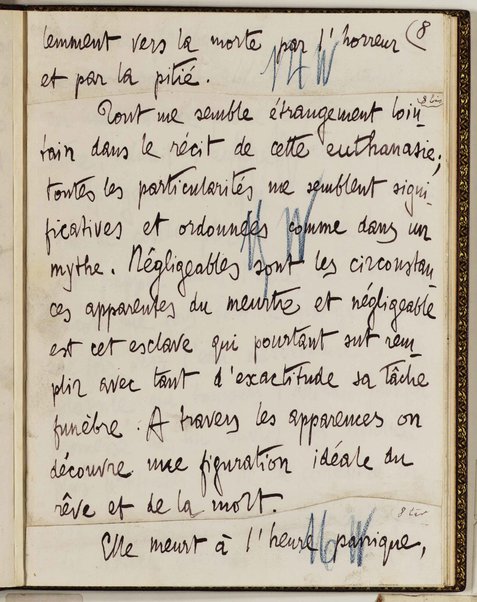 lemment vers la morte par l'horreur (8
et par la pitié. 14 W
8 bis
Tout me semble étrangement loin-
tain dans le récit de cette euthanasie;
toutes les particularités me semblent signi-
ficatives et ordonnées comme dans un
mythe. Négligeables sont les circonstan
ces apparentes du meurtre et négligeable
est cet esclave qui pourtant sut rem
plir avec tant d'exactitude sa tâche
funèbre. A travers les apparences on
découvre une figuration idéale du
rêve et de la mort.
8 ter
Elle meurt à l'heure panique,
16 W